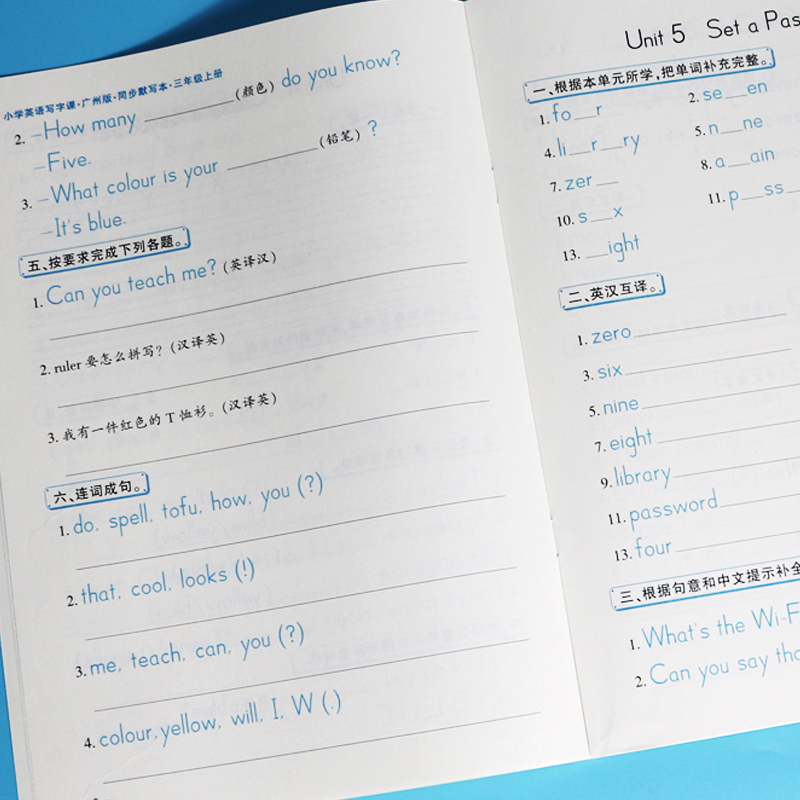 小学英语写字课·广州版·同步默写本·三年级上册
2. –How many ______ (颜色) do you know?
–Five.
3. –What colour is your ______ (铅笔) ?
–It's blue.
五、按要求完成下列各题。
1. Can you teach me? (英译汉)
2. ruler 要怎么拼写? (汉译英)
3. 我有一件红色的 T 恤衫。(汉译英)
六、连词成句。
1. do, spell, tofu, how, you (?)
2. that, cool, looks (!)
3. me, teach, can, you (?)
4. colour, yellow, will, I, W (.)
Unit 5 Set a
一、根据本单元所学,把单词补充完整。
1. fo__r 2. se__en
4. li__r__ry 5. n__ne
7. zer__ 8. a__ain
10. s__x 11. p__ss
13. __ight
二、英汉互译。
1. zero
3. six
5. nine
7. eight
9. library
11. password
13. four
三、根据句意和中文提示补全
1. What's the
2. Can you say